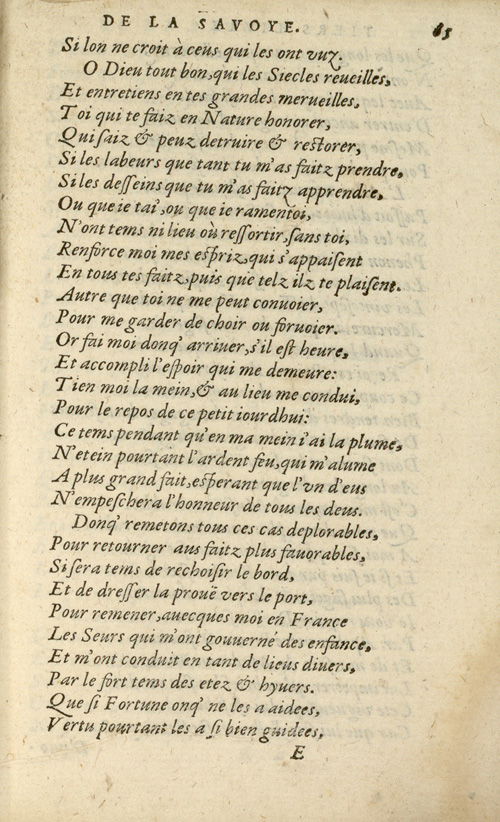 DE LA SAVOYE. 65
Si lon ne croit à ceus qui les ont vuz.
O Dieu tout bon, qui les Siecles reueilles,
Et entretiens en tes grandes merueilles,
Toi qui te faiz en Nature honorer,
Qui saiz & peuz detruire & restorer,
Si les labeurs que tant tu m'as faitz prendre,
Si les desseins que tu m'as faitz apprendre,
Ou que ie tai, ou que ie ramentoi,
N'ont tems ni lieu où ressortir, sans toi,
Renforce moi mes espriz, qui s'appaisent
En tous tes faitz, puis que telz ilz te plaisent.
Autre que toi ne me peut conuoier,
Pour me garder de choir ou foruoier.
Or fai moi donq' arriuer, s'il est heure,
Et accompli l'espoir qui me demeure:
Tien moi la mein, & au lieu me condui,
Pour le repos de ce petit iourdhui:
Ce tems pendant qu'en ma mein i'ai la plume,
N'etein pourtant l'ardent feu, qui m'alume
A plus grand fait, esperant que l'vn d'eus
N'empeschera l'honneur de tous les deus.
Donq' remetons tous ces cas deplorables,
Pour retourner aus faitz plus fauorables,
Si sera tems de rechoisir le bord,
Et de dresser la prouë vers le port,
Pour remener, auecques moi en France
Les Seurs qui m'ont gouuerné des enfance,
Et m'ont conduit en tant de lieus diuers,
Par le fort tems des etez & hyuers.
Que si Fortune onq' ne les a aidees,
Vertu pourtant les a si bien guidees,
E